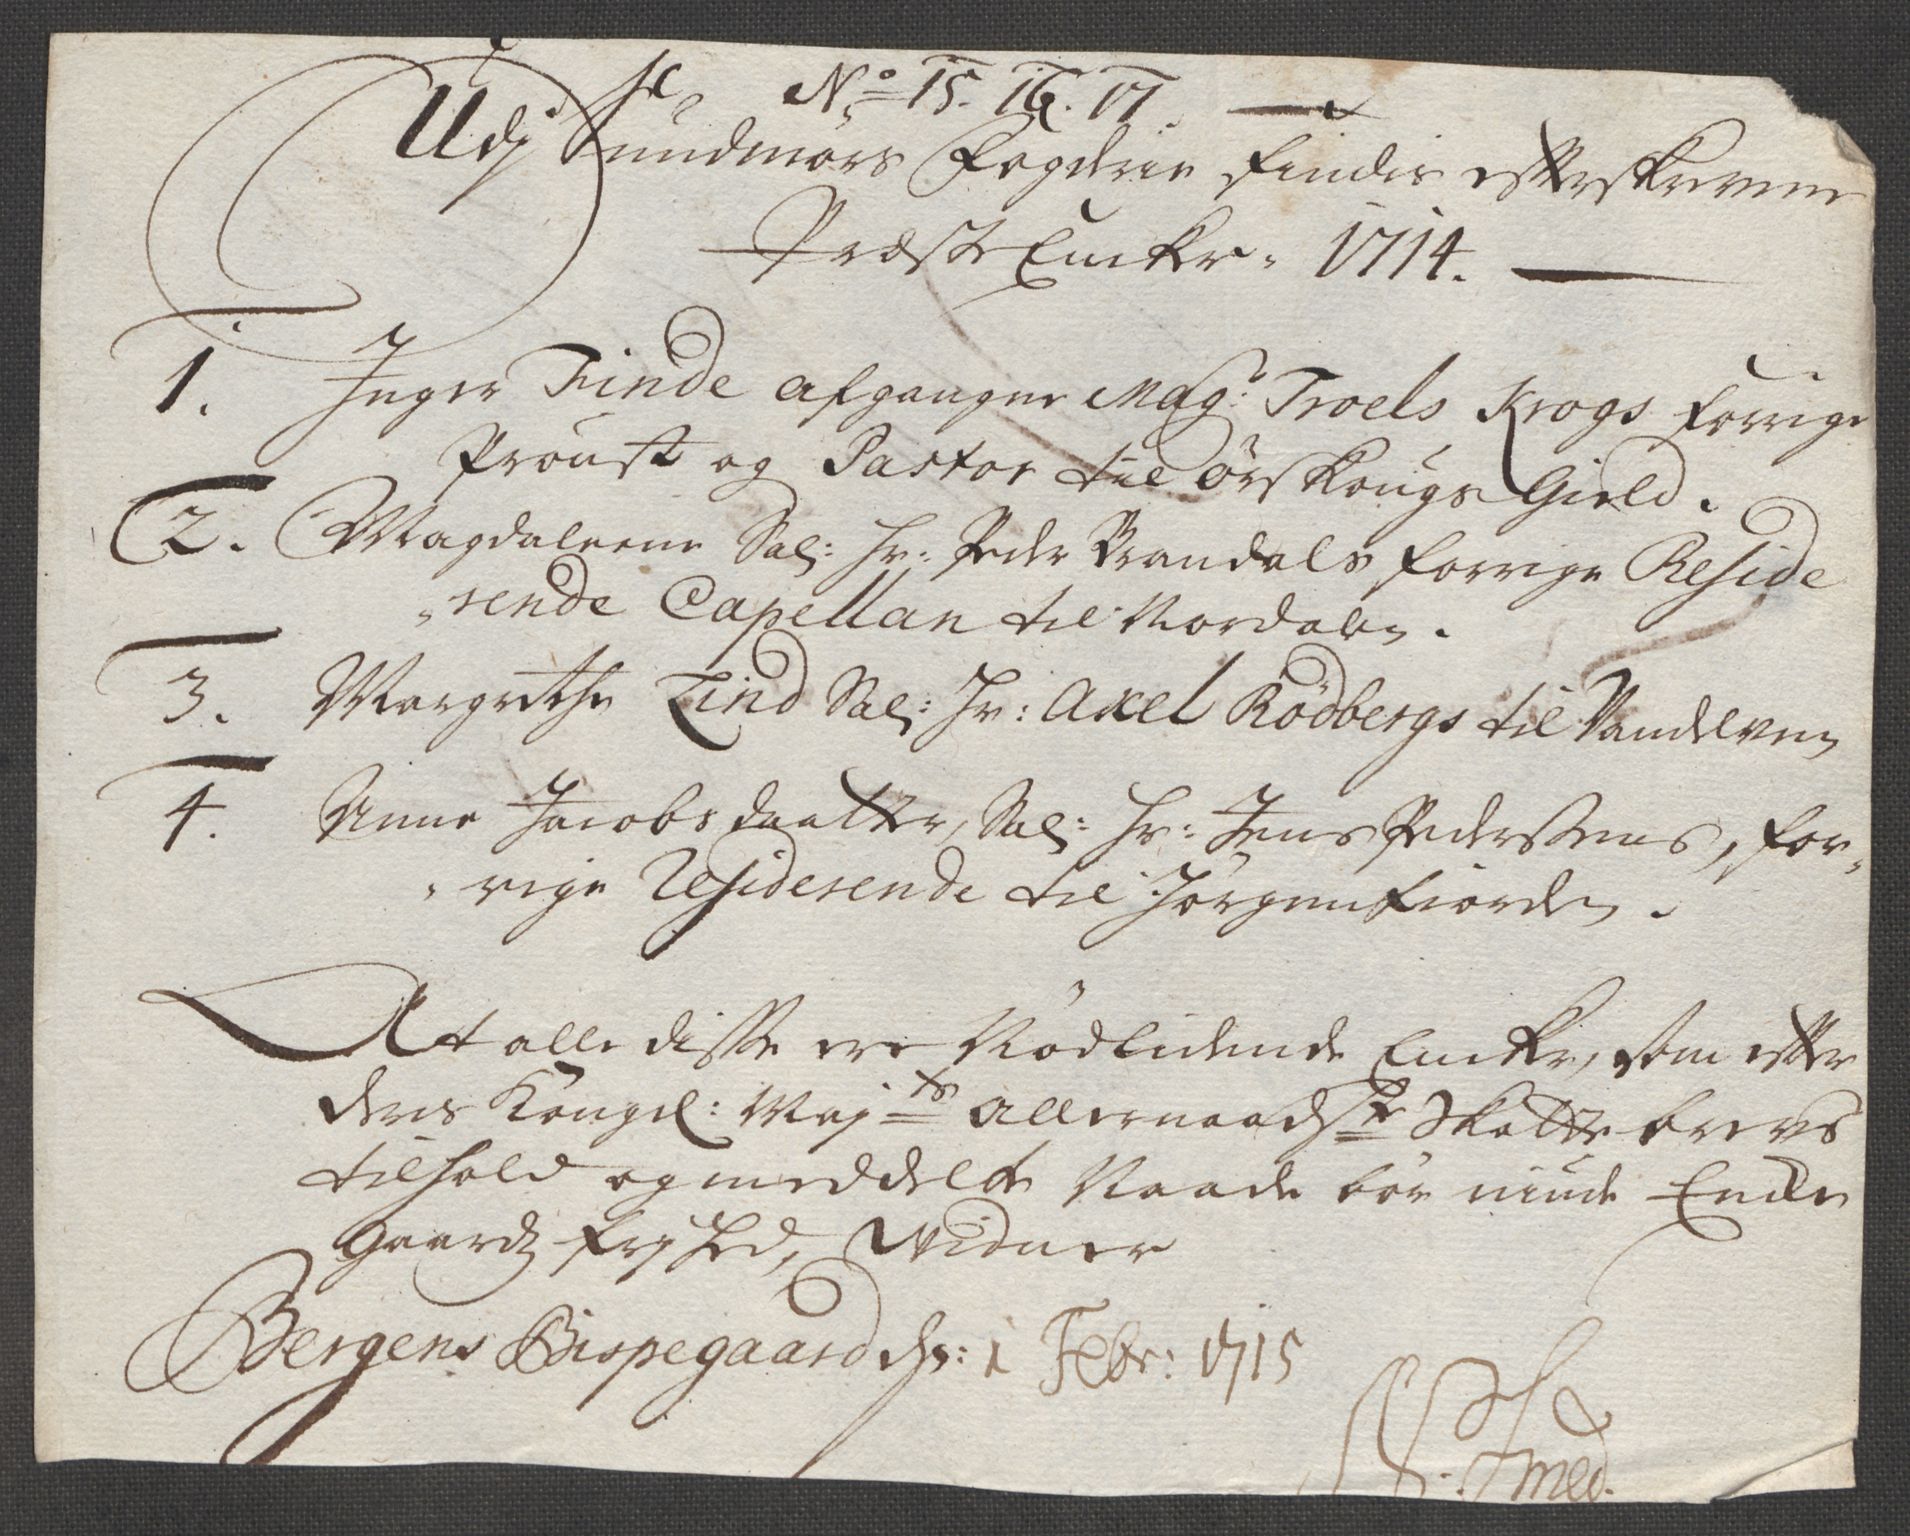 No 15. 16. 17.
Udj Sundmørs Fogderie findis efterskrevene
Præste Encker. 1714.
1. Inger Finde afgangne Mag: Troels Krogs forrige
Proust og Pastor til Ørskougs Gield.
2. Magdaleene Sal: Hr: Peder Brandals forrige Reside
"rende Capellan til Nordalen.
3. Margrethe Lind Sal: Hr: Axel Rödbergs til Vandelven
4. Anne Jacobsdaatter, Sal: Hr: Jens Pederssens, for„
"rige Residerende til Jørgenfiorden.
At alle disse ere Nödlidende Encker, som efter
deris Kongel: Mayts allernaadste Skatte brevs
tilhold og meddelte Naade bör niude Encke
Gaards frjhed, vidner
Bergens Bispegaard dn: 1 Febr: 1715
N: Smed.